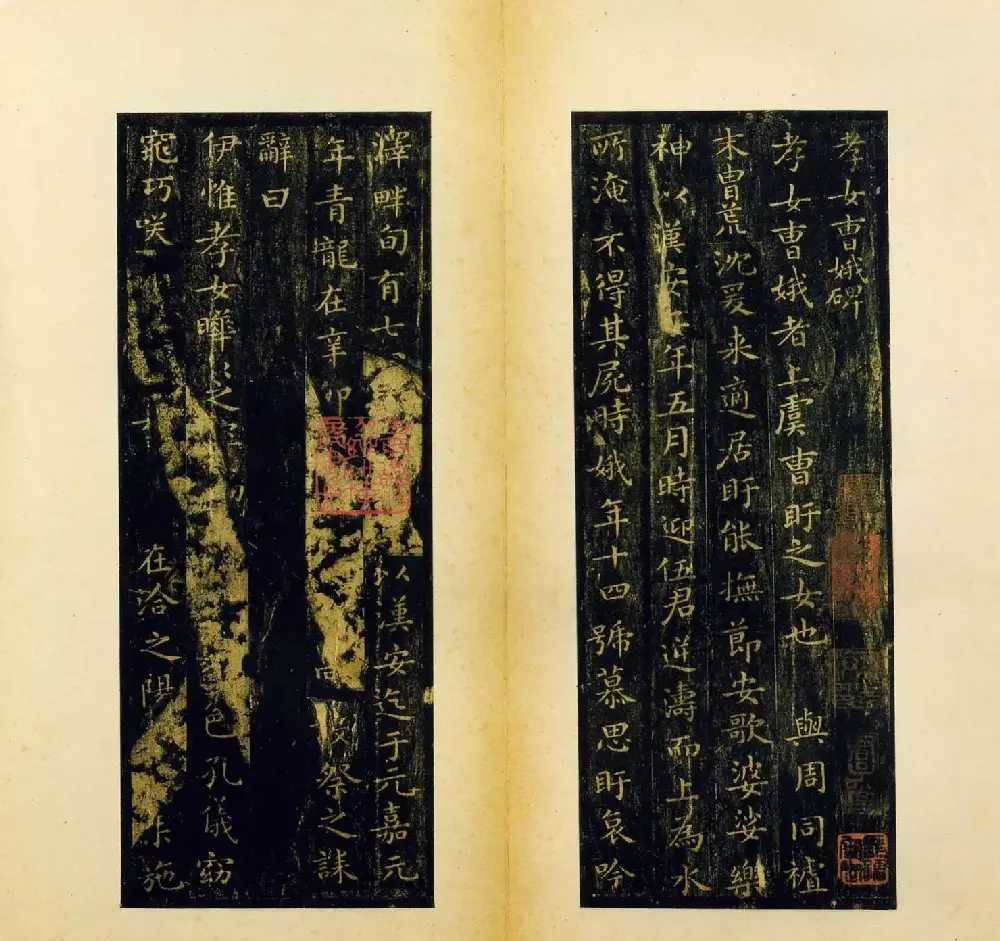 孝女曹娥碑
孝女曹娥者上虞曹盱之女也 與周同䄡
末曹荒沈爰来適居盱能撫節安歌婆娑樂
神以漢安二年五月時迎伍君逆濤而上為水
所淹不得其屍時娥年十四號慕思盱哀吟
澤畔旬有七 以漢安迄于元嘉元
年青龍在辛卯 祭之誄
辭曰
伊惟孝女曄〻之 色孔儀窈
窕巧咲 在洽之陽 施